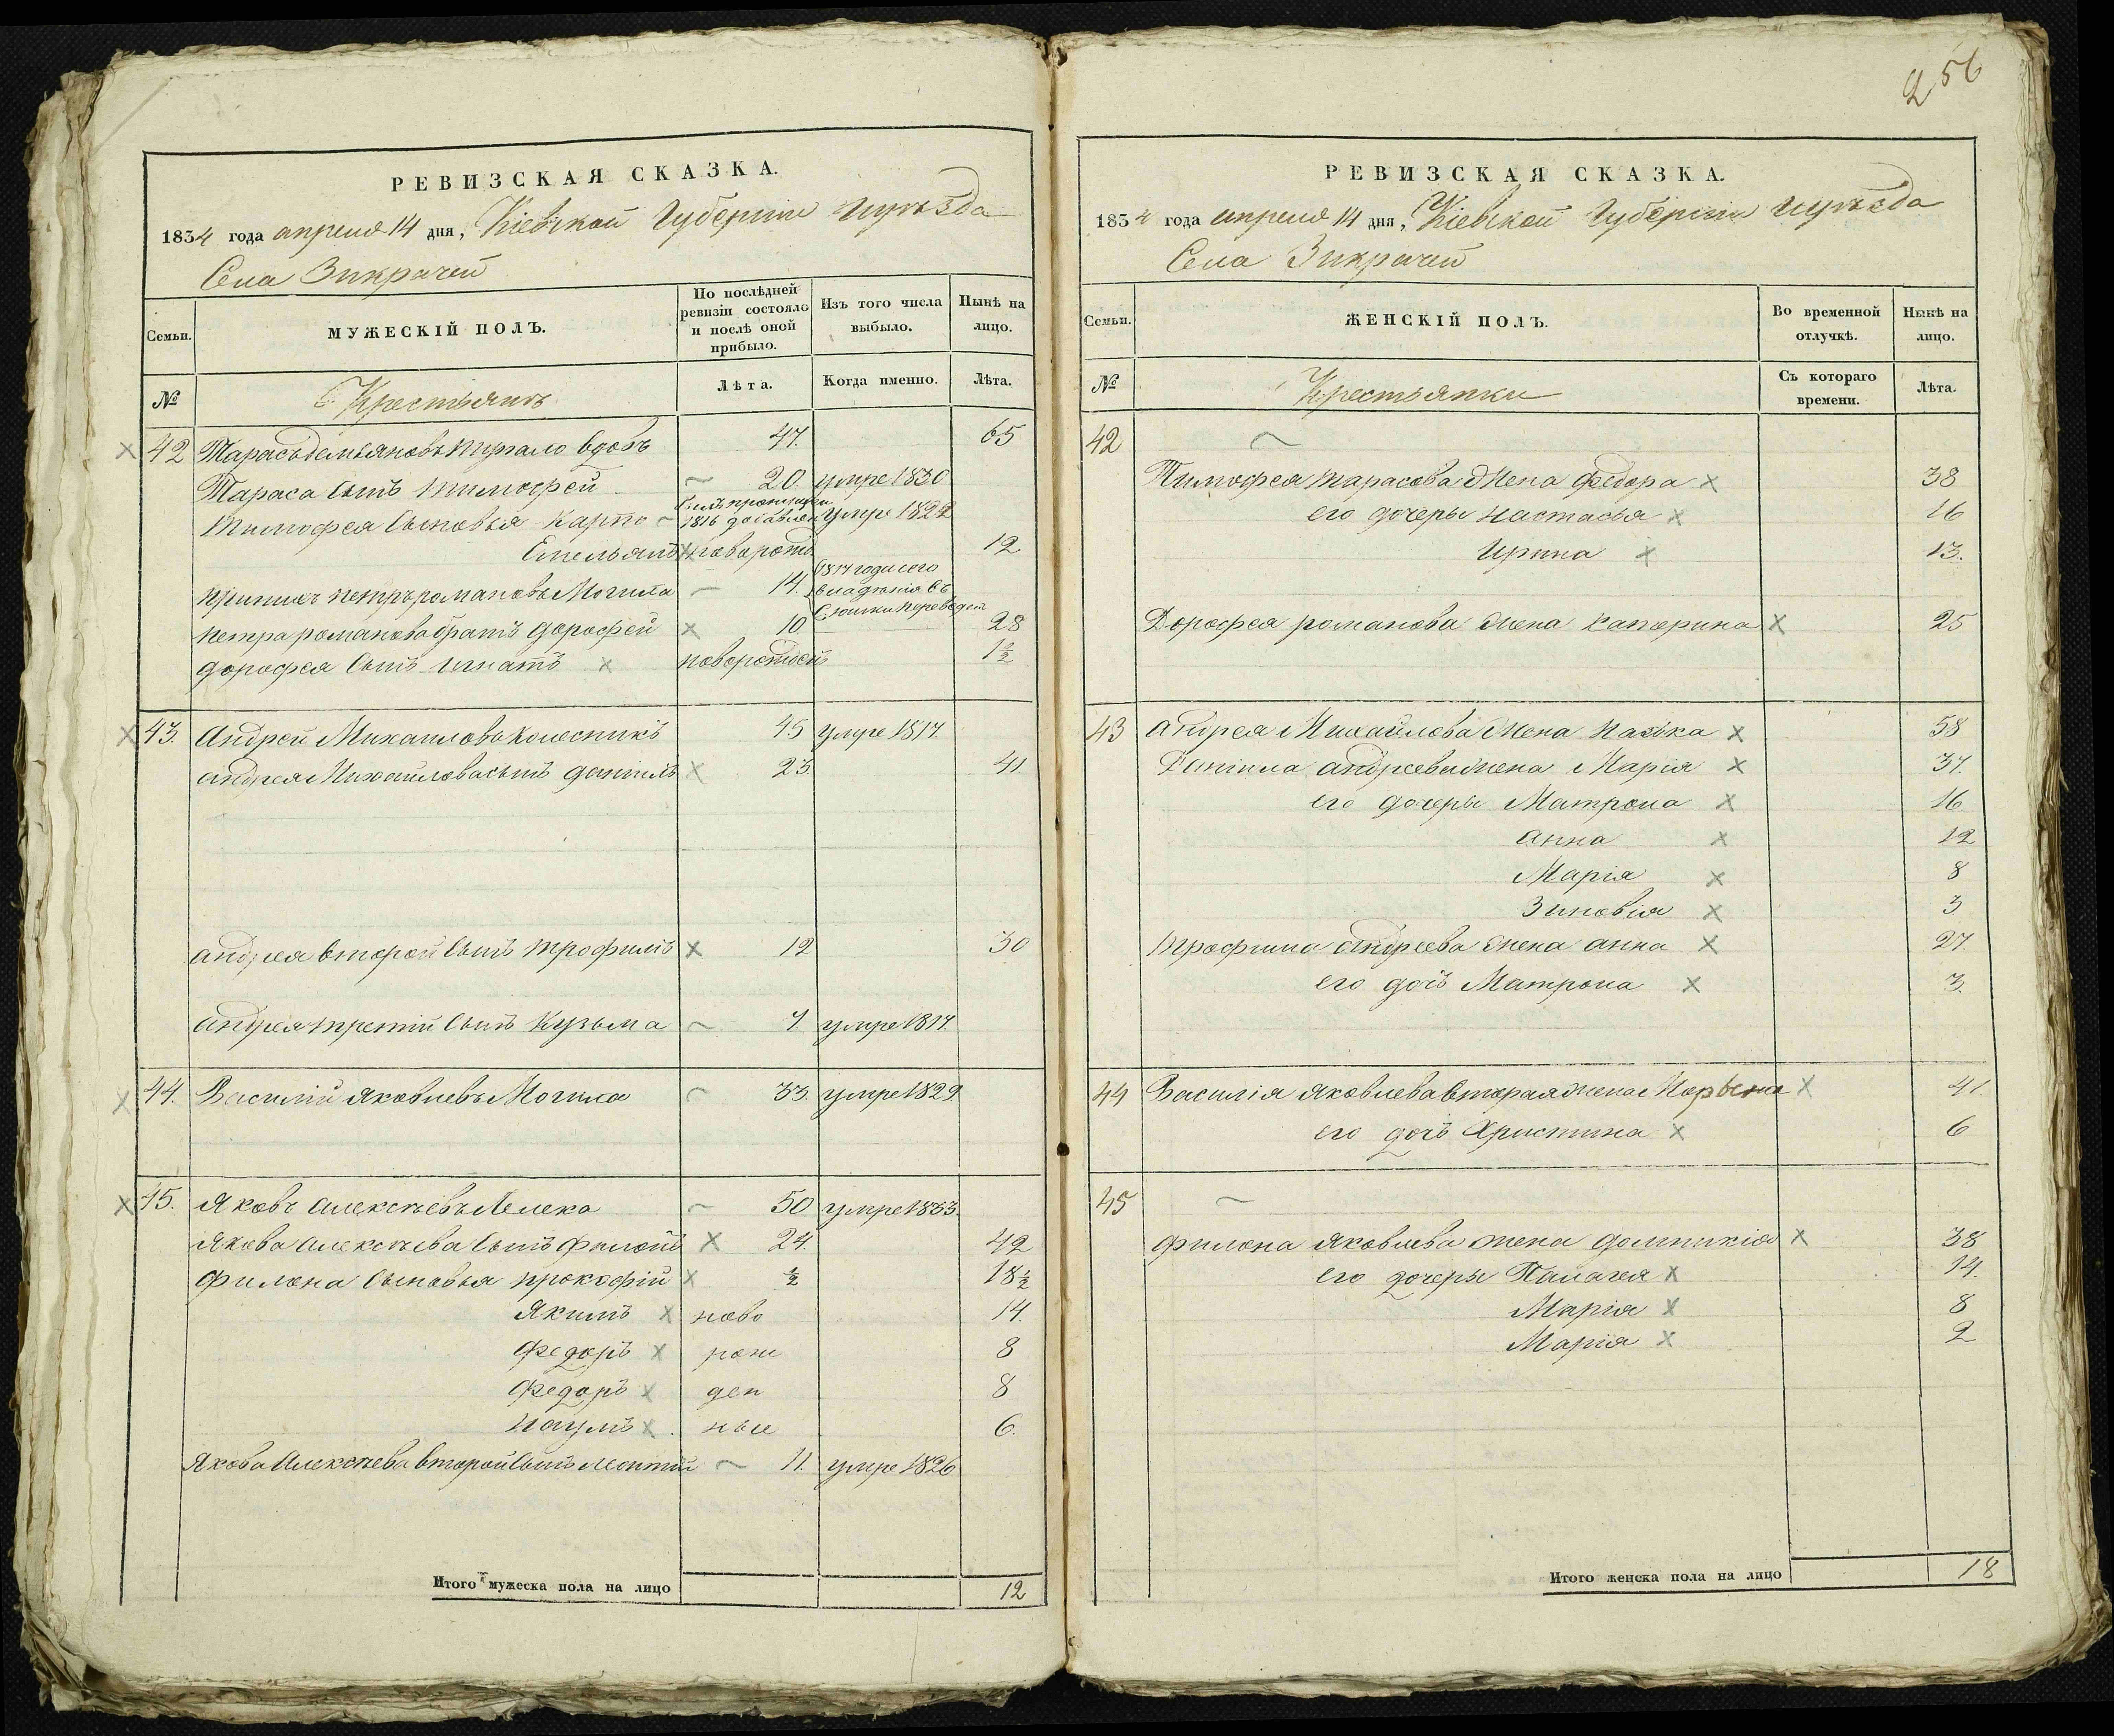 256
РЕВИЗСКАЯ СКАЗКА.
1834 года апреля 14 дня, Кіевской Губерніи иуѣзда
Села Зикрачей
Семьи. МУЖЕСКІЙ ПОЛЪ. По послѣдней ревизіи состояло и послѣ оной прибыло. Изъ того числа выбыло. Ныпѣ на лицо.
№ Крестьянъ Лѣта. Когда именно. Лѣта.
42 Тарасъ демьяновъ вдовъ 47. 65
Тараса сынъ тимофей 20. умре 1830
тимофея сыновья карпо 1816 добавленъ умре 1822
Емельянъ новорожд 12
петръ романовъ Могила 14. 1817 года сего владѣнія въ переведен
петра романова братъ дорофей 10. 28
дорофея сынъ игнатъ новорожден 1 1/2
43. Андрей Михаиловъ колесникъ 45 умре 1817.
андрея Михайлова сынъ даніилъ 23. 41
андрея второй сынъ трофимъ 12 30
андрея третій сынъ кузьма 7 умре 1817.
44. Василій яковлевъ Могила 33. умре 1829
45. Яковъ алексѣевъ Лелека 50 умре 1833.
якова алексѣева сынъ филонъ 24. 42
филона сыновья прокофій 1/2 18 1/2
якимъ ново 14.
федоръ рож 8
федоръ ден 8
наумъ ные 6.
якова алексѣева второй сынъ леонтій 11. умре 1826
Итого мужеска пола на лицо 12
РЕВИЗСКАЯ СКАЗКА.
1834 года апреля 14 дня, Кіевской Губерніи иуѣзда
Села Зикрачей
Семьи. ЖЕНСКІЙ ПОЛЪ. Во временной отлучкѣ. Нынѣ на лицо.
№ Крестьянки Съ котораго времени. Лѣта.
42
Тимофея тарасова жена федора 38
его дочеры настасья 16
ирина 13.
Дорофея романова жена катерина 25
43 андрея Михайлова жена 58
Даніила андреева жена Марія 37.
его дочеры Матрона 16
анна 12
Марія 8
Зиновія 3
трофима андреева жена анна 27.
его дочь Матрона 3.
44 Василія яковлева вторая жена 41.
его дочь христина 6
45
филона яковлева жена домникія 38
его дочеры Палагея 14.
Марія 8
Марія 2
Итого женска пола на лицо 18